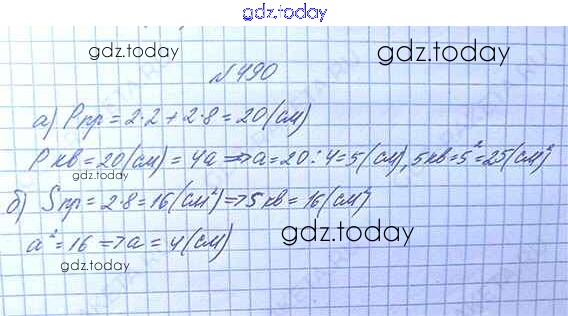 gdz.today
gdz.today gdz.today
№490
а) Pпр = 2·2 + 2·8 = 20 (см)
Pкв = 20 (см) = 4a => a = 20 : 4 = 5 (см), Sкв = 5² = 25 (см²)
gdz.today
б) Sпр = 2·8 = 16 (см²) => Sкв = 16 (см²)
a² = 16 => a = 4 (см)
gdz.today
gdz.today